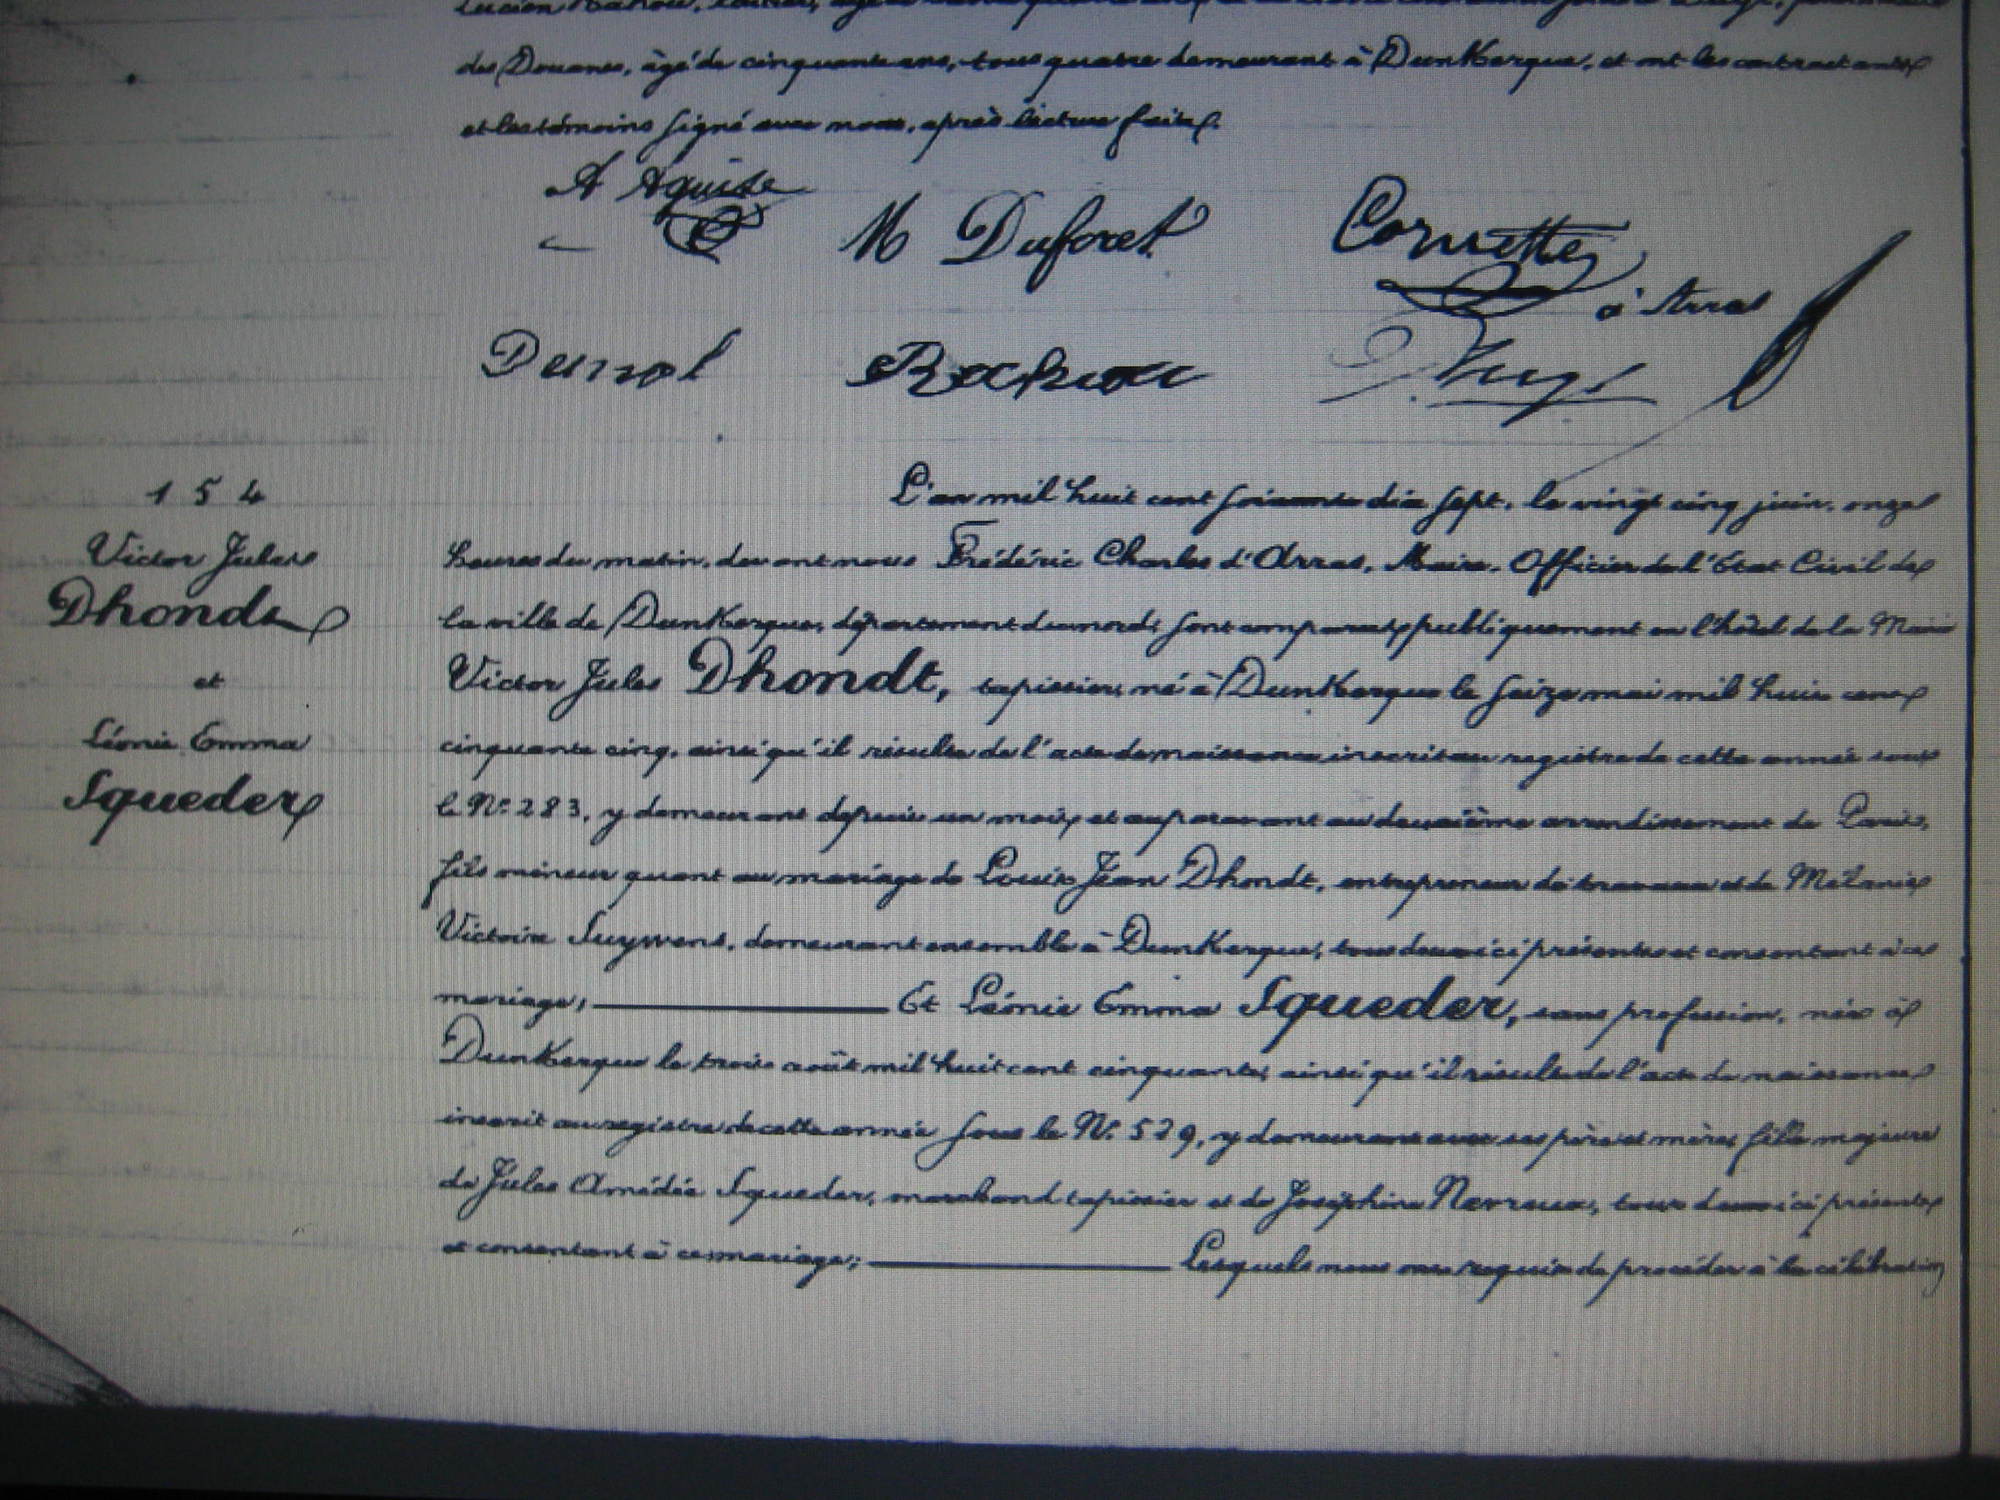 des Douanes, âgé de cinquante ans, tous quatre demeurant à Dunkerque, et ont les contractants
et les témoins signé avec nous, après lecture faite.
M Duforet
Cornette
à Arras
154
L'an mil huit cent soixante dix sept, le vingt cinq juin, onze
Victor Jules
heures du matin, devant nous Frédéric Charles d'Arras, Maire, Officier de l'Etat Civil de
Dhondt
la ville de Dunkerque, département du nord, sont comparus publiquement en l'hôtel de la Mairie
et
Victor Jules Dhondt, tapissier, né à Dunkerque le seize mai mil huit cent
Léonie Emma
cinquante cinq, ainsi qu'il résulte de l'acte de naissance inscrit au registre de cette année sous
Squeder
le N° 283, y demeurant depuis un mois et auparavant au deuxième arrondissement de Paris,
fils mineur quant au mariage de Louis Jean Dhondt, entrepreneur de travaux et de Mélanie
Victoire Suywens, demeurant ensemble à Dunkerque, tous deux ici présents et consentant à ce
mariage; Et Léonie Emma Squeder, sans profession, née à
Dunkerque le trois août mil huit cent cinquante, ainsi qu'il résulte de l'acte de naissance
inscrit au registre de cette année sous le N° 529, y demeurant avec ses père et mère, fille majeure
de Jules Amédée Squeder, marchand tapissier et de Joséphine Nerreux, tous deux ici présents
et consentant à ce mariage; Lesquels nous ont requis de procéder à la célébration